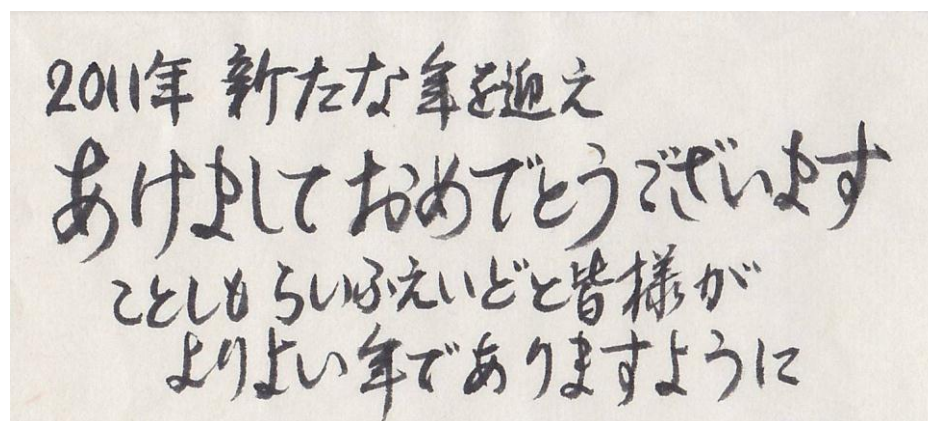 2011年 新たな年を迎え
あけましておめでとうございます
ことしも らいふえいどと皆様が
よりよい年でありますように